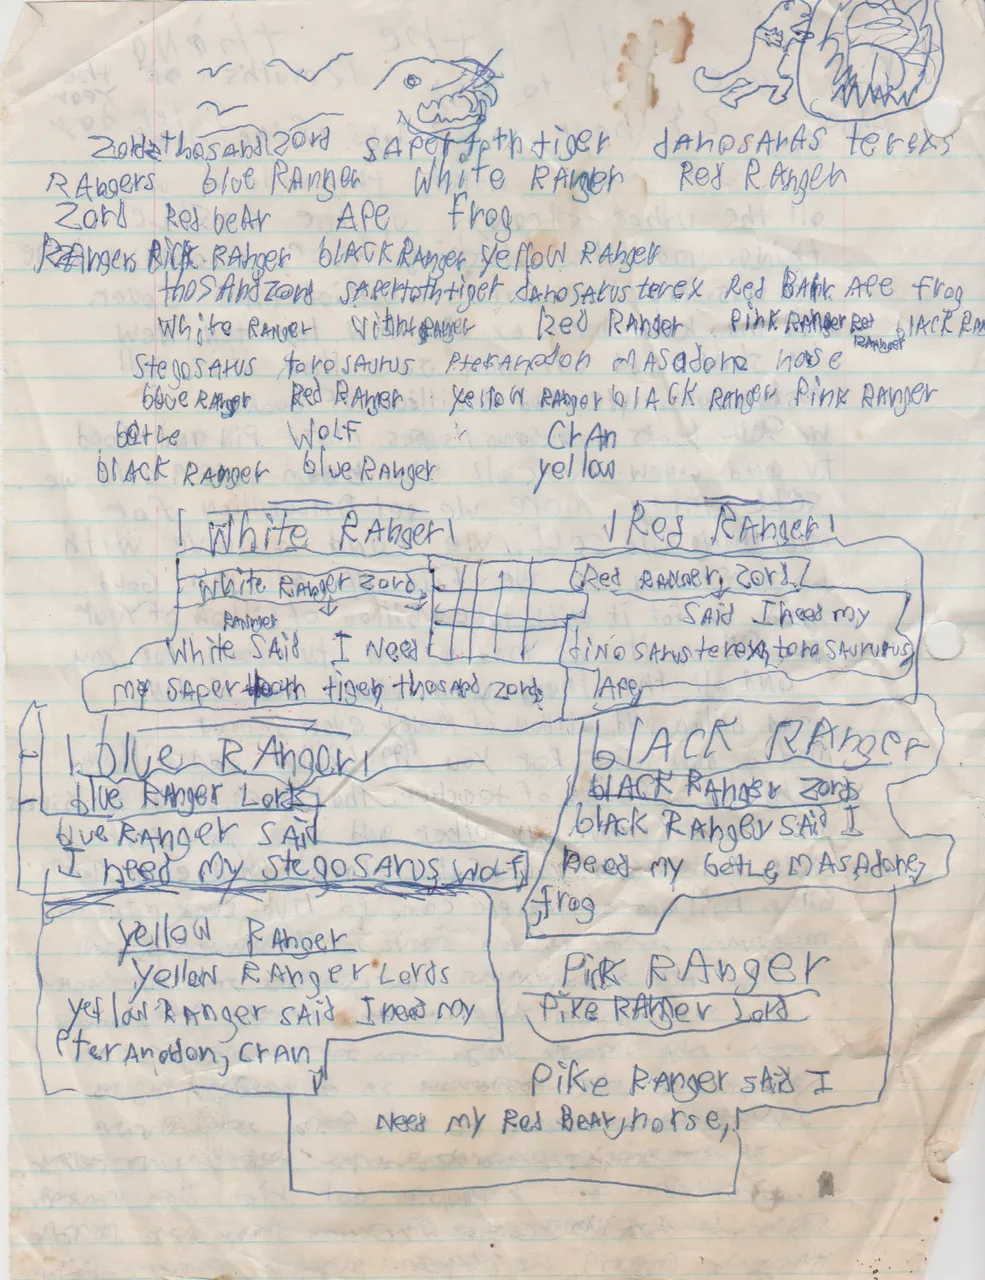 Zords thosandZord sapertothtiger danosaras terexs
RAngers blue RAnger White RAnger Red RAnger
Zord Redbear Ape frog
RAngers Pick RAnger blACK RAnger yellow RAnger
thosandzord sapertothtiger danosarusterex Red BeAr Ape frog
White RAnger RAnger Red RAnger PinkRAnger Red RAnger blACK RAn
Stegosarus torosaurus pteranodon masadone horse
blueRAnger Red RAnger yellow RAnger blACK RAnger Pink RAnger
betle WOLF CrAn
blACK RAnger blueRAnger yellow
White RAnger Red RAnger
White RAnger Zord Red RAnger Zord
White RAnger Said I Need Said I need my
dinosarusterex, torosaururus,
my saper tooth tiger, thosand zord, Ape,
blue RAnger blACK RAnger
blue RAnger Lords blACK RAnger Zords
blue RAnger sAid blACK RAnger sAid I
I need my stegosarus, wolf, need my betle, mASAdone,
frog
yellow RAnger
yellow RAnger Lords Pick RAnger
yellow RAnger sAid I need my Pike RAnger Lord
pterAnodon, CrAn
Pike RAnger said I
Need my Red BeAr, horse,